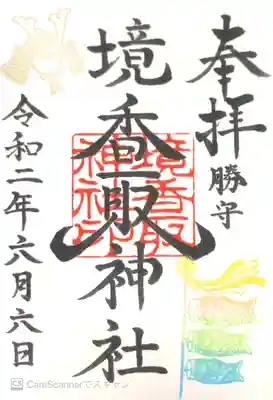 奉拝
勝守
境香取神社
境香取神社印
令和二年六月六日
CamScannerでスキャン